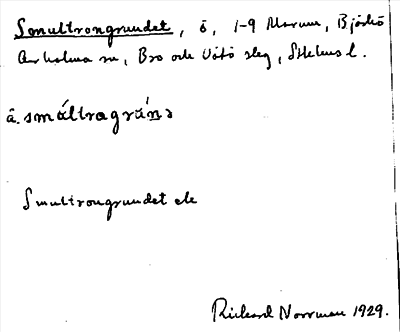 Smultrongrundet, ö, 1-9 Marum, Björkö
Arholma sn, Bro och Vätö slg, Sthlms l.
å. smáltragrúnd
Smultrongrundet ek
Rickard Norrman 1929.